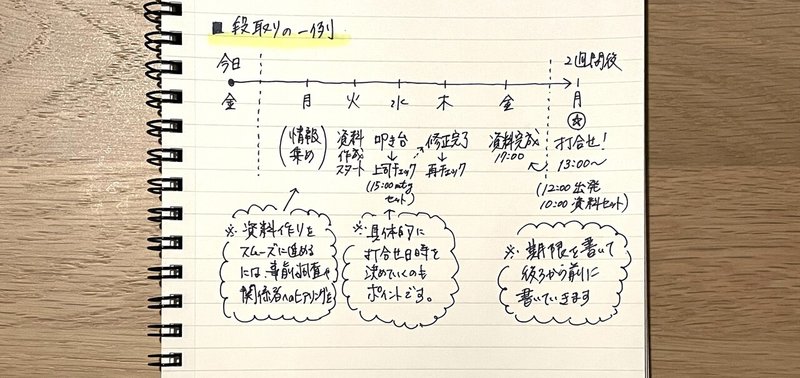 ■ 段取りの一例
今日
2週間後
金 月 火 水 木 金 月
(情報
集め)
資料
作成
スタート
叩き台
↓
上司チェック
(15:00mtg
セット)
修正完了
↓
再チェック
資料完成
17:00
☆
打合せ!
13:00〜
(12:00出発
10:00資料セット)
※ 資料作りを
スムーズに進める
には、事前調査や
関係者へのヒアリングを
※ 具体的に
打合せ日時を
決めていくのも
ポイントです。
※ 期限を書いて
後ろから前に
書いていきます